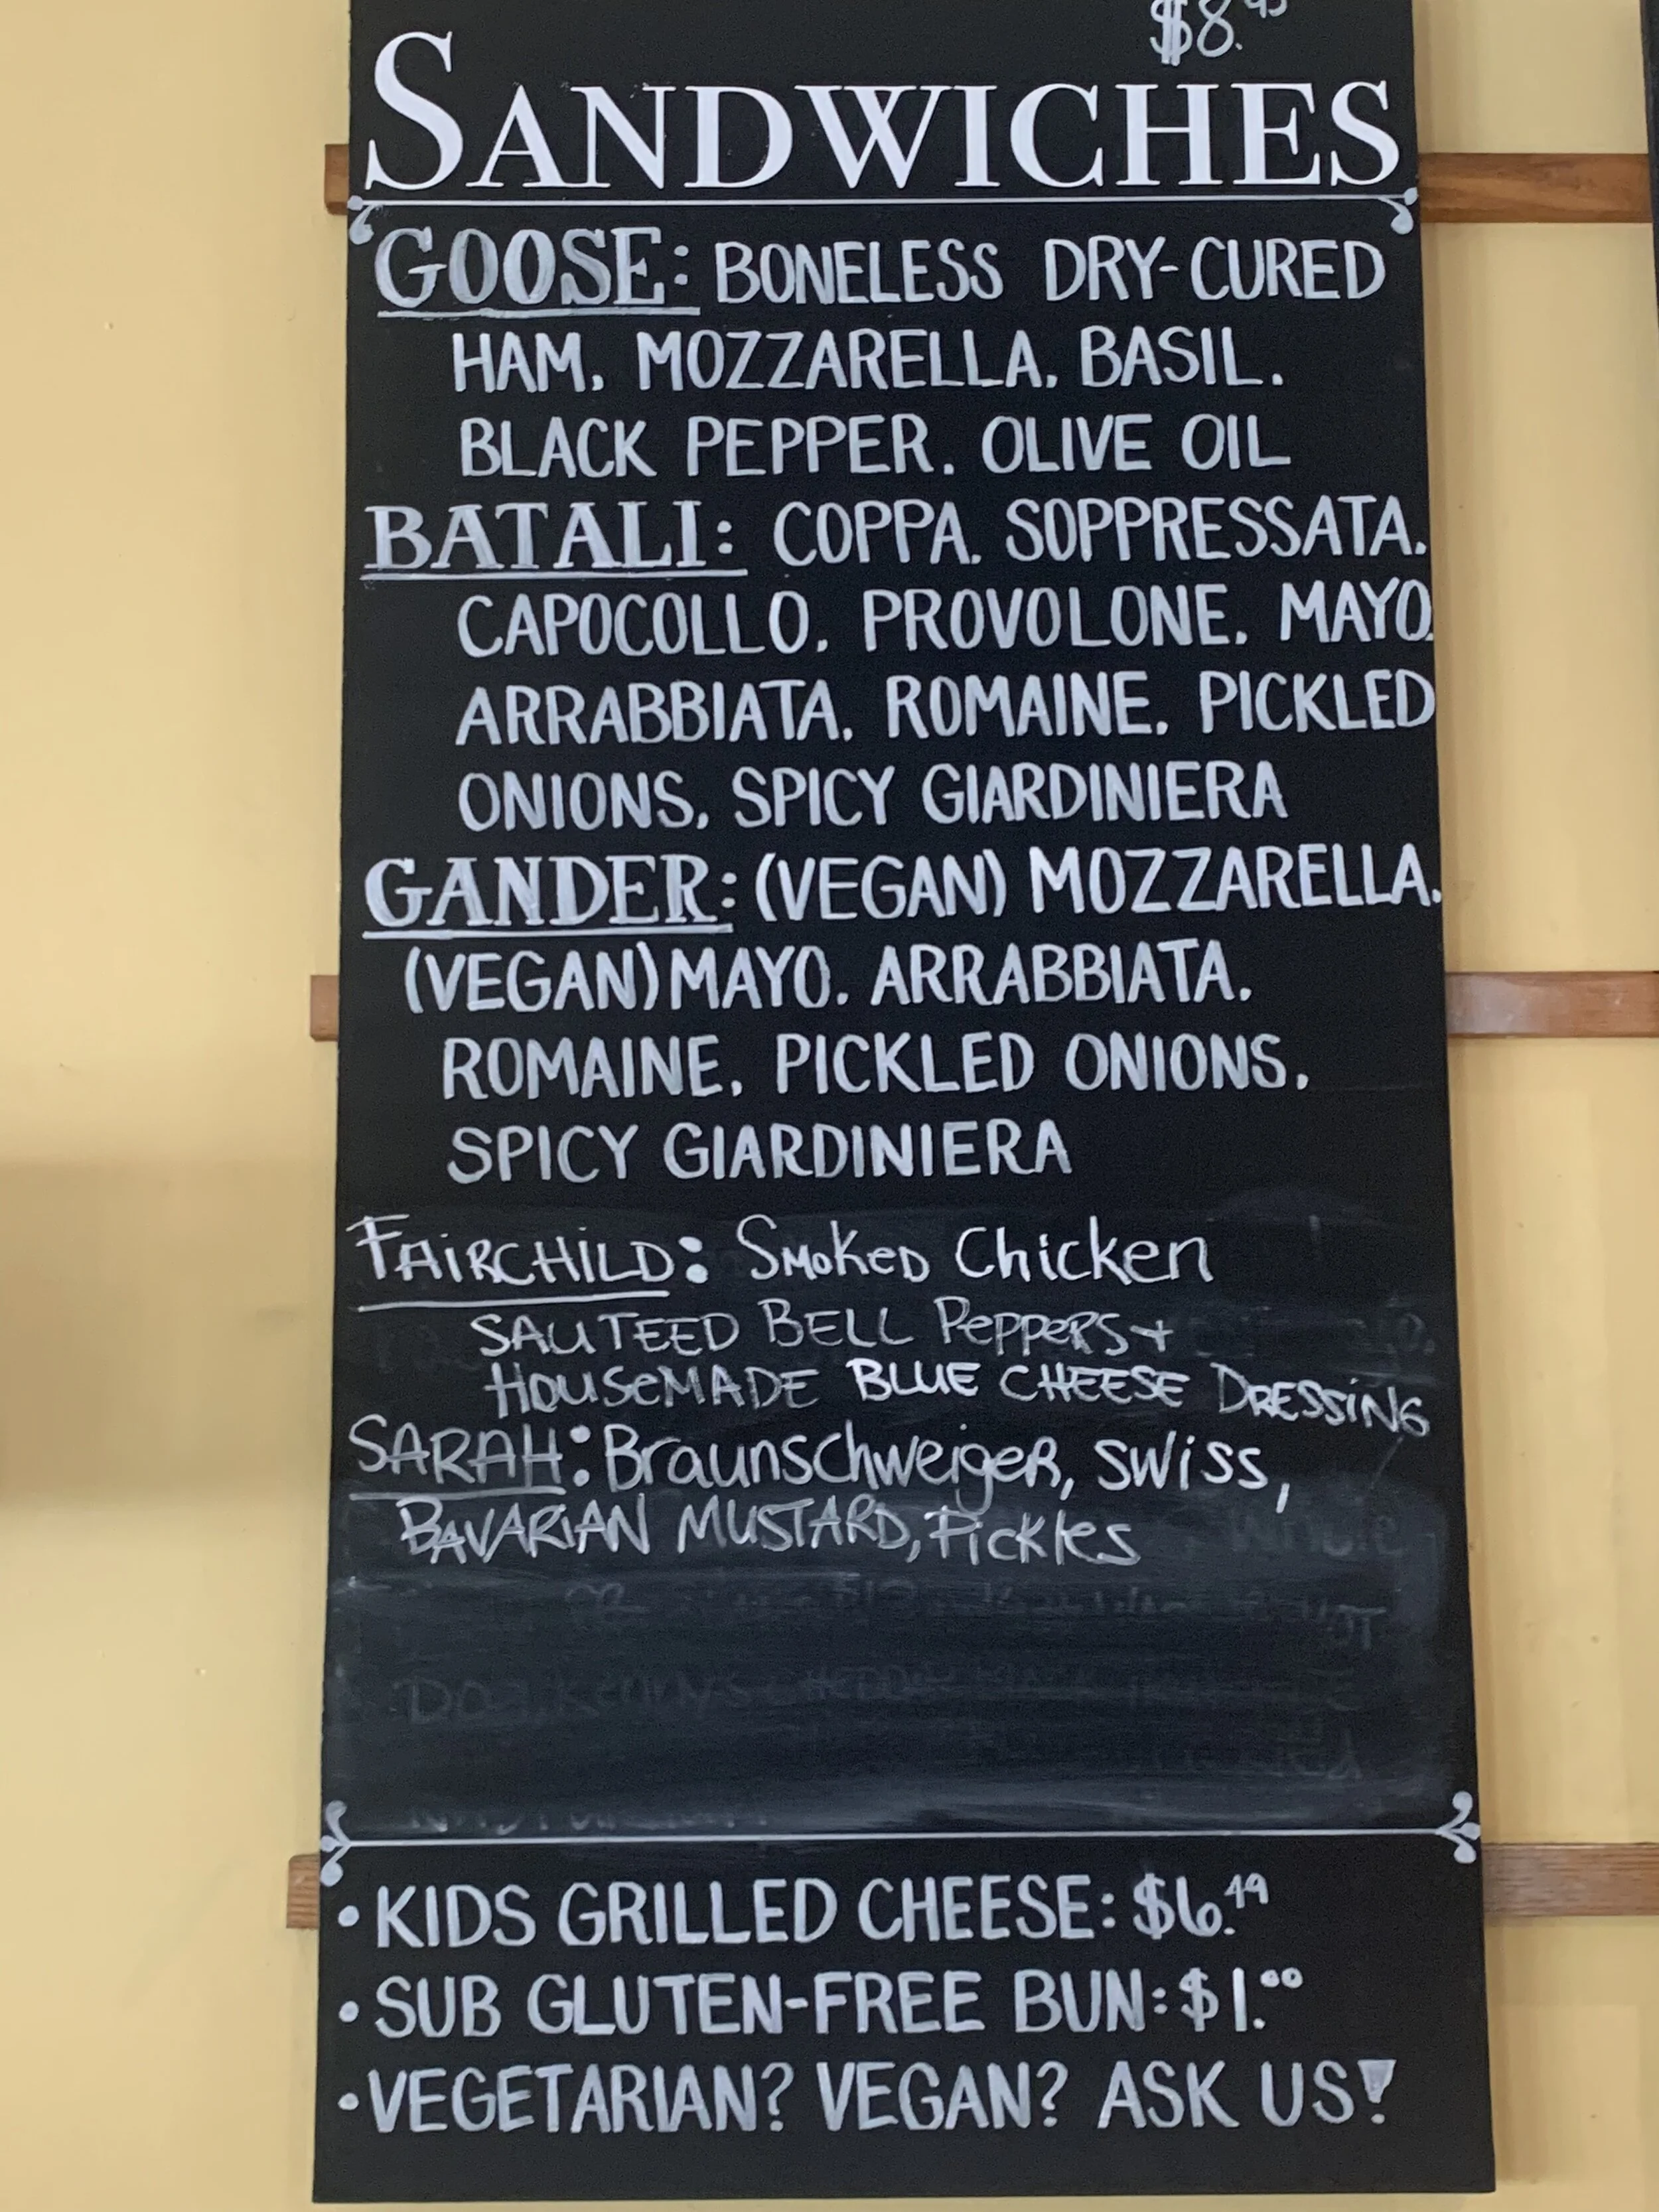 $8.95
SANDWICHES
GOOSE: BONELESS DRY-CURED
HAM, MOZZARELLA, BASIL,
BLACK PEPPER, OLIVE OIL
BATALI: COPPA, SOPPRESSATA,
CAPOCOLLO, PROVOLONE, MAYO,
ARRABBIATA, ROMAINE, PICKLED
ONIONS, SPICY GIARDINIERA
GANDER: (VEGAN) MOZZARELLA,
(VEGAN) MAYO, ARRABBIATA,
ROMAINE, PICKLED ONIONS,
SPICY GIARDINIERA
FAIRCHILD: Smoked Chicken
SAUTEED BELL PePPeRS +
HOUSeMADE BLUE CHEESE DRESSiNG
SARAH: BraunschweigeR, SWiSS,
BAVARIAN MUSTARD, Pickles
• KIDS GRILLED CHEESE: $6.49
• SUB GLUTEN-FREE BUN: $1.00
• VEGETARIAN? VEGAN? ASK US!